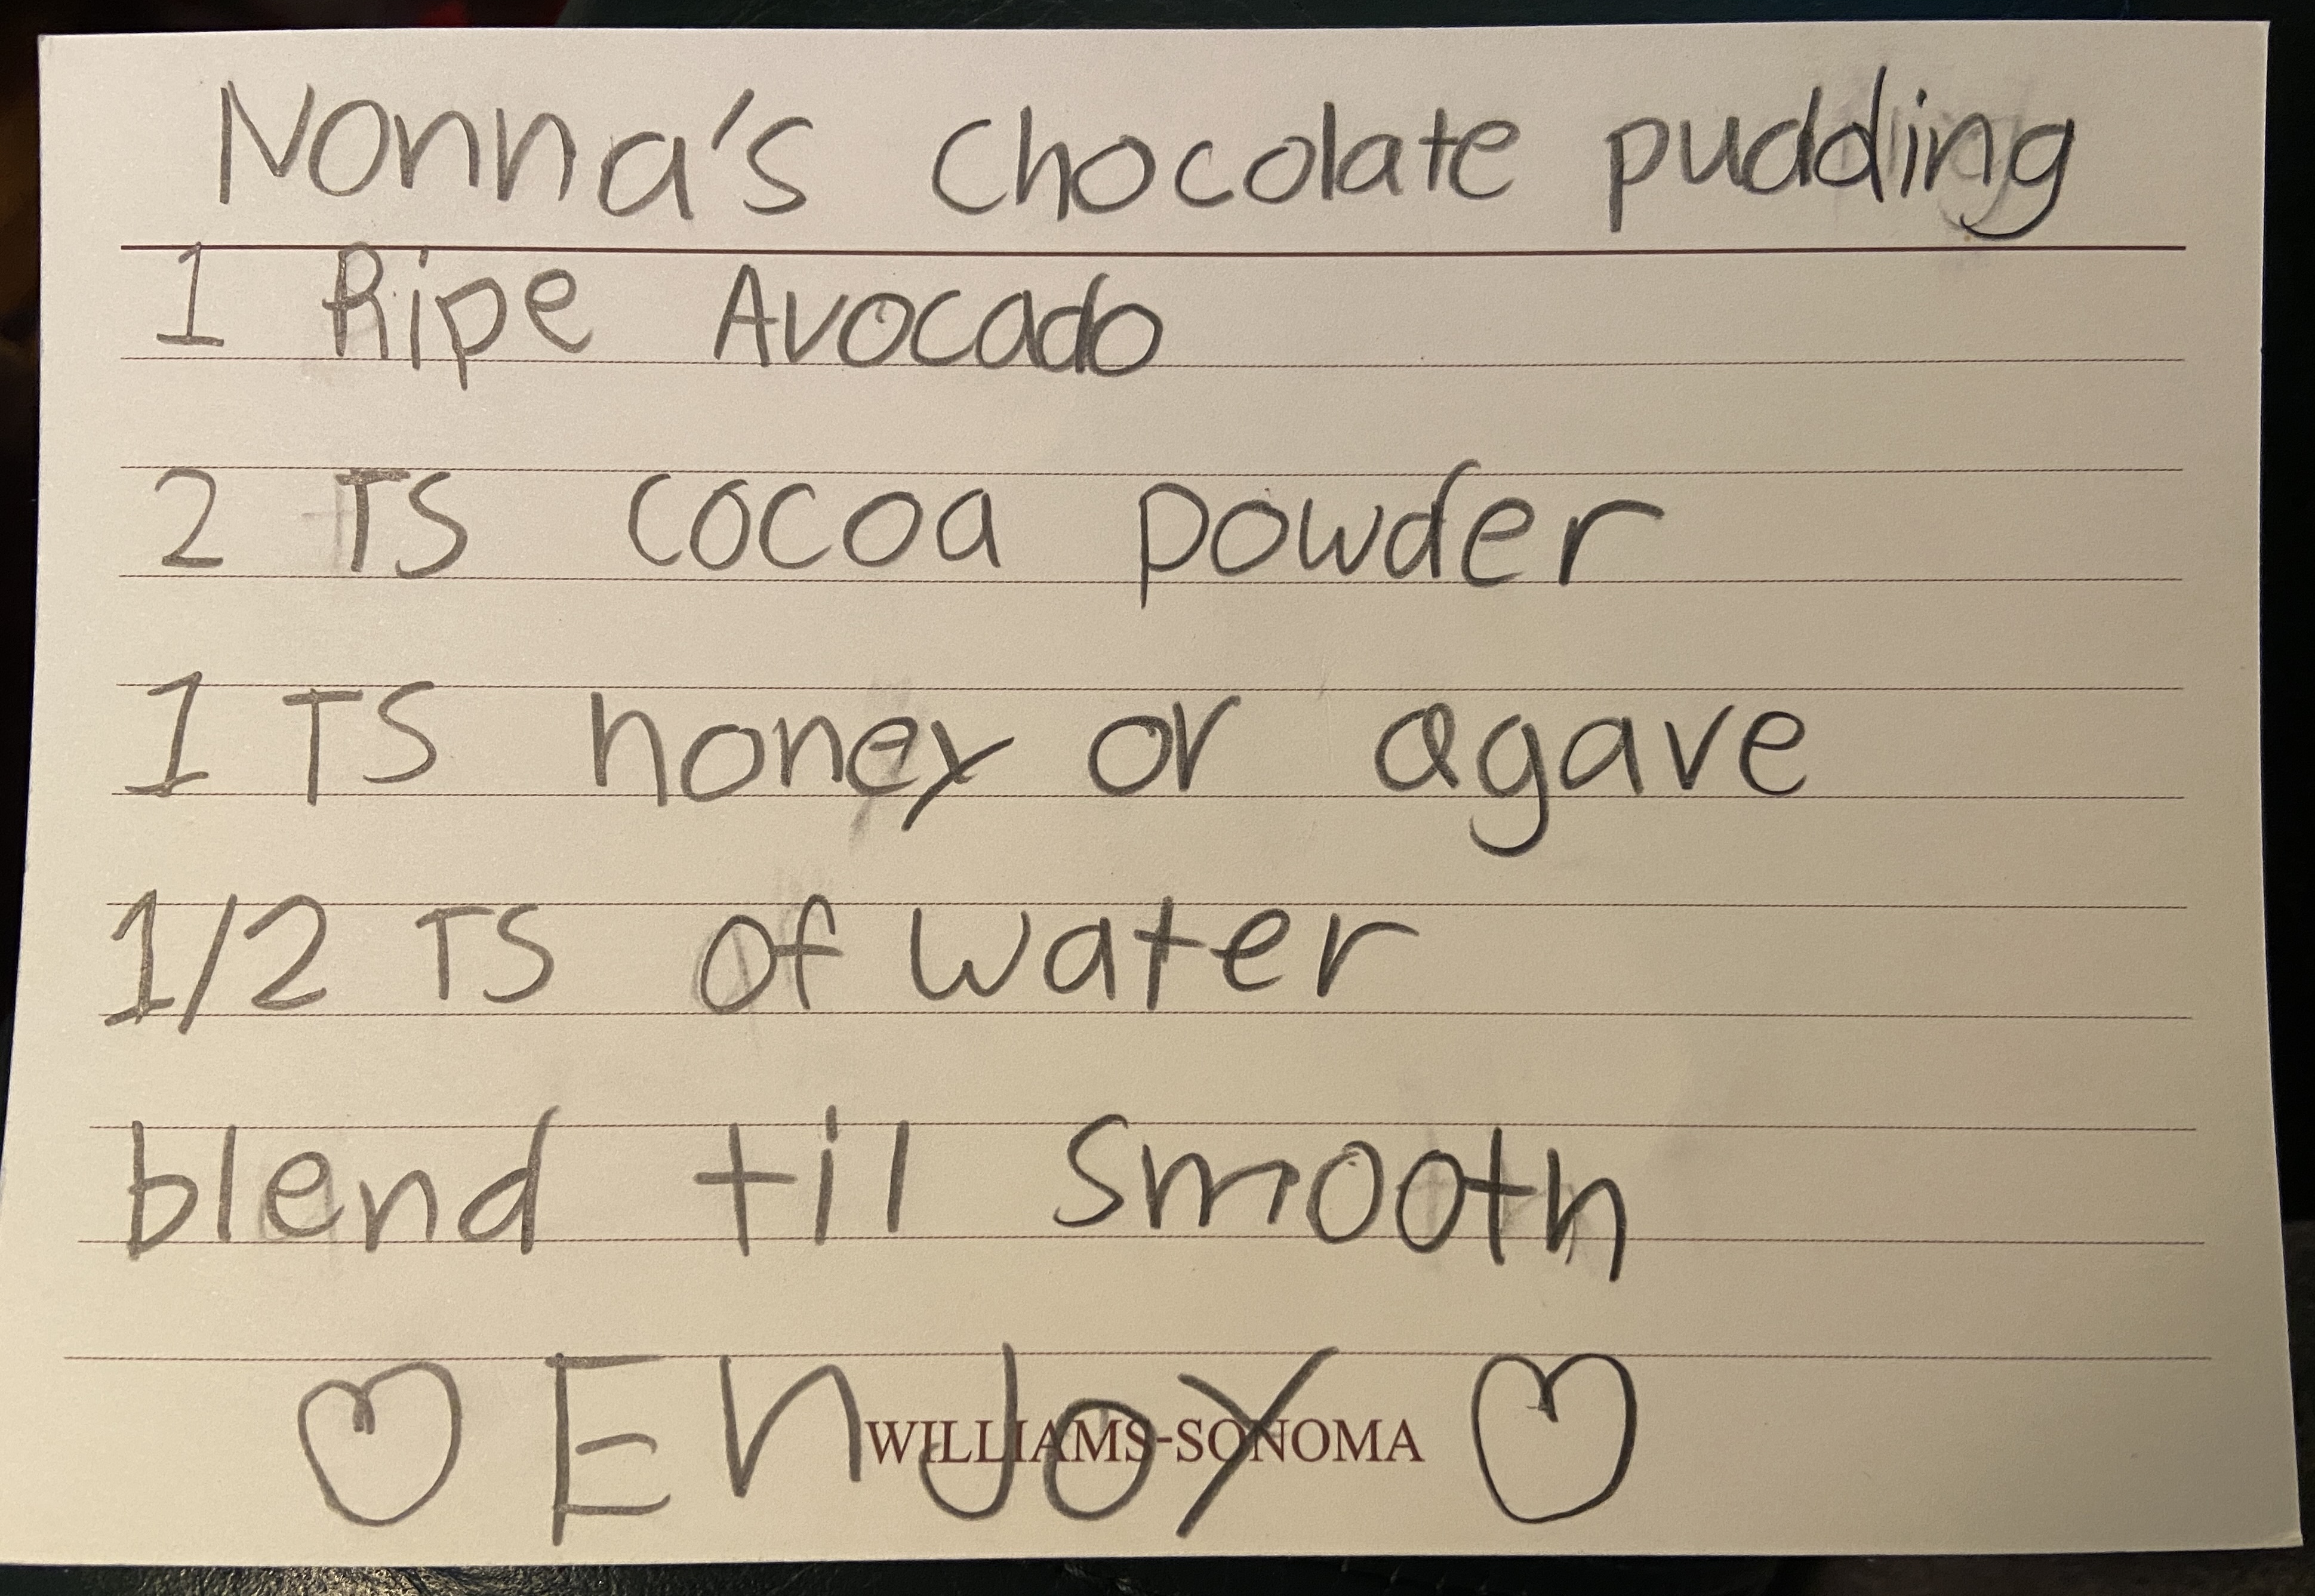 Nonna's chocolate pudding
1 Ripe Avocado
2 TS cocoa powder
1 TS honey or agave
1/2 TS of water
blend til smooth
♡ ENJOY ♡
WILLIAMS-SONOMA